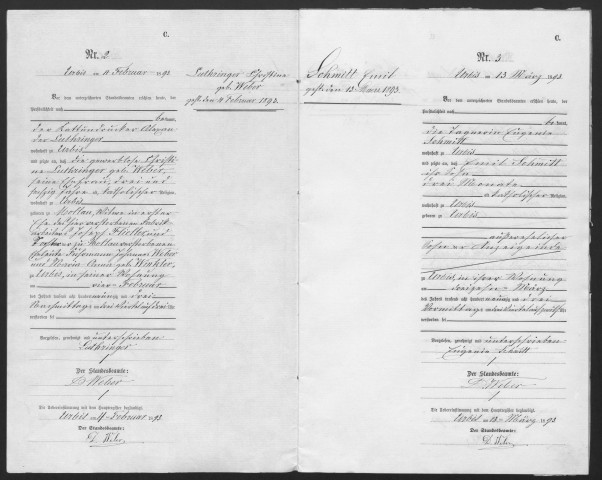 C.
Nr. 2
Urbis am 4 Februar 1893
Luthringer Christine
geb. Weber
gest. den 4 Februar 1893.
Vor dem unterzeichneten Standesbeamten erschien heute, der
Persönlichkeit nach
kannt,
der Kattundrucker Alexan
der Luthringer
wohnhaft zu Urbis
und zeigte an, daß die gewerblose Christi
ne Luthringer geb. Weber,
seine Ehefrau, drei und
fünfzig Jahre alt, katholischer Religion,
wohnhaft zu Urbis
geboren zu Mollau, Witwe in erster
Ehe des hier verstorbenen
Joseph
zu Mollau verstorbenen
Eheleute Fuhrmann Johannes Weber
und Anna geb. Winkler,
zu Urbis, in seiner Wohnung
am vier Februar
des Jahres tausend acht hundert neunzig und drei
Nachmittags um drei Uhr
verstorben sei
Vorgelesen, genehmigt und unterschrieben
Luthringer
Der Standesbeamte:
D. Weber
Die Uebereinstimmung mit dem Hauptregister beglaubigt
Urbis am 4 Februar 1893
Der Standesbeamte:
D. Weber
C.
Nr. 3
Urbis am 13 März 1893
Schmitt Emil
gest. den 13 März 1893.
Vor dem unterzeichneten Standesbeamten erschien heute, der
Persönlichkeit nach
kannt,
die Tagnerin Eugenie
Schmitt
wohnhaft zu Urbis
und zeigte an, daß Emil Schmitt
ihr Sohn
drei Monate
alt, katholischer Religion,
wohnhaft zu Urbis
geboren zu Urbis
außerehelicher
Sohn der Anzeigende
zu Urbis, in ihrer Wohnung
am dreizehn März
des Jahres tausend acht hundert neunzig und drei
Vormittags um Uhr
verstorben sei
Vorgelesen, genehmigt und unterschrieben
Eugenie Schmitt
Der Standesbeamte:
D. Weber
Die Uebereinstimmung mit dem Hauptregister beglaubigt
Urbis am 13 März 1893
Der Standesbeamte:
D. Weber